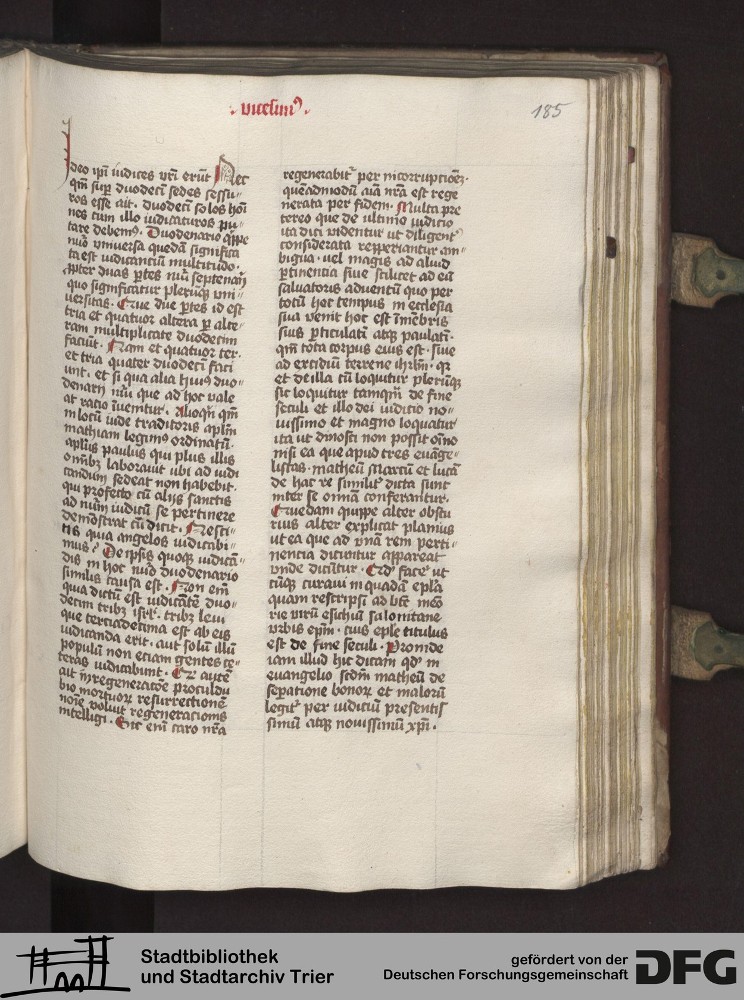 · vicesim⁹ ·
185
Ideo ip̄i iudices vr̄i erūt Nec
qm̄ sup̱ duodecī sedes sessu-
ros esse ait. duodecī solos hoī
nes cum illo iudicaturos pu-
tare debem⁹. Duodenario q̄ippe
nūo vniuersa quedā significa
ta est iudicantiū multitudo.
ꝓpter duas ꝑtes nūi septenarij
quo significatur pleruq̄ vni-
uersitas. Que due ꝑtes id est
tria et quatuor altera ꝑ alte-
ram multiplicate duodecim
faciūt. Nam et quatuor ter.
et tria quater duodecī faci
unt. et si qua alia hui⁹ duo-
denarij nūi que ad hoc vale
at ratio īuenitur. Alioqn̄ qm̄
in locū iude traditoris apl̄m
mathiam legim⁹ ordinatū.
apl̄us paulus qui plus illis
om̄ibꝫ laborauit ubi ad iudi
candum sedeat non habebit.
qui profecto cū alijs sanctis
ad nūm iudicū se pertinere
demōstrat cū dicit. Nesci-
tis quia angelos iudicabi-
mus? De ipsis quoqꝫ iudicā-
dis in hoc nūo duodenario
similis causa est. Non em̄
quia dictū est iudicātes duo-
decim tribꝫ isrl̄. tribꝫ leui
que terciadecima est ab eis
iudicanda erit. aut solū illū
populū non eciam gentes ce-
teras iudicabunt. Qꝫ autē
ait in regeneratōe proculdu
bio mortuoꝝ resurrectionē
noīe voluit regeneracionis
intelligi. Sic em̄ caro nr̄a
regenerabit᷑ per incorruptioēꝫ.
quēadmodū aīa nr̄a est rege
nerata per fidem. Multa pre
tereo que de ultimo iudicio
ita dici videntur ut diligent᷑
considerata repperiantur am-
bigua. vel magis ad aliud
ꝑtinentia siue scilicet ad eū
saluatoris aduentū quo per
totū hoc tempus in ecclesia
sua venit hoc est ī mēbris
suis ꝑticulatī atqꝫ paulatī.
qm̄ tota corpus eius est. siue
ad excidiū terrene ihrl̄m. qꝛ
et de illa cū loquitur pleruqꝫ
sic loquitur tamqm̄ de fine
seculi et illo dei iudicio no-
uissimo et magno loquatur
ita ut dinosci non possit oīno
nisi ea que apud tres euāge-
listas. matheū Marcū et lucā
de hac re similit᷑ dicta sunt
inter se omnia conferantur.
Quedam quippe alter obscu
rius alter explicat planius
ut ea que ad vnā rem perti-
nencia dicuntur appareat
vnde dicātur. Qd᷑ face᷑ ut
cūqꝫ curaui in quadā epl̄a
quam rescripsi ad btē mēo
rie virū esichiū salonitane
vrbis ep̄m. cuius epl̄e titulus
est de fine seculi. Proinde
iam illud hic dicam qd᷑ in
euangelio scdm̄ matheū de
sepatione bonoꝝ et maloꝝ
legit᷑ per iudiciū presentis
simū atqꝫ nouissimū xp̄i.
Stadtbibliothek
und Stadtarchiv Trier
gefördert von der
Deutschen Forschungsgemeinschaft
DFG